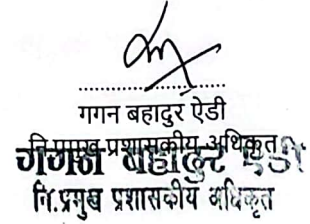 गगन बहादुर ऐडी
नि.प्रमुख प्रशासकीय अधिकृत
गगन बहादुर ऐडी
नि.प्रमुख प्रशासकीय अधिकृत